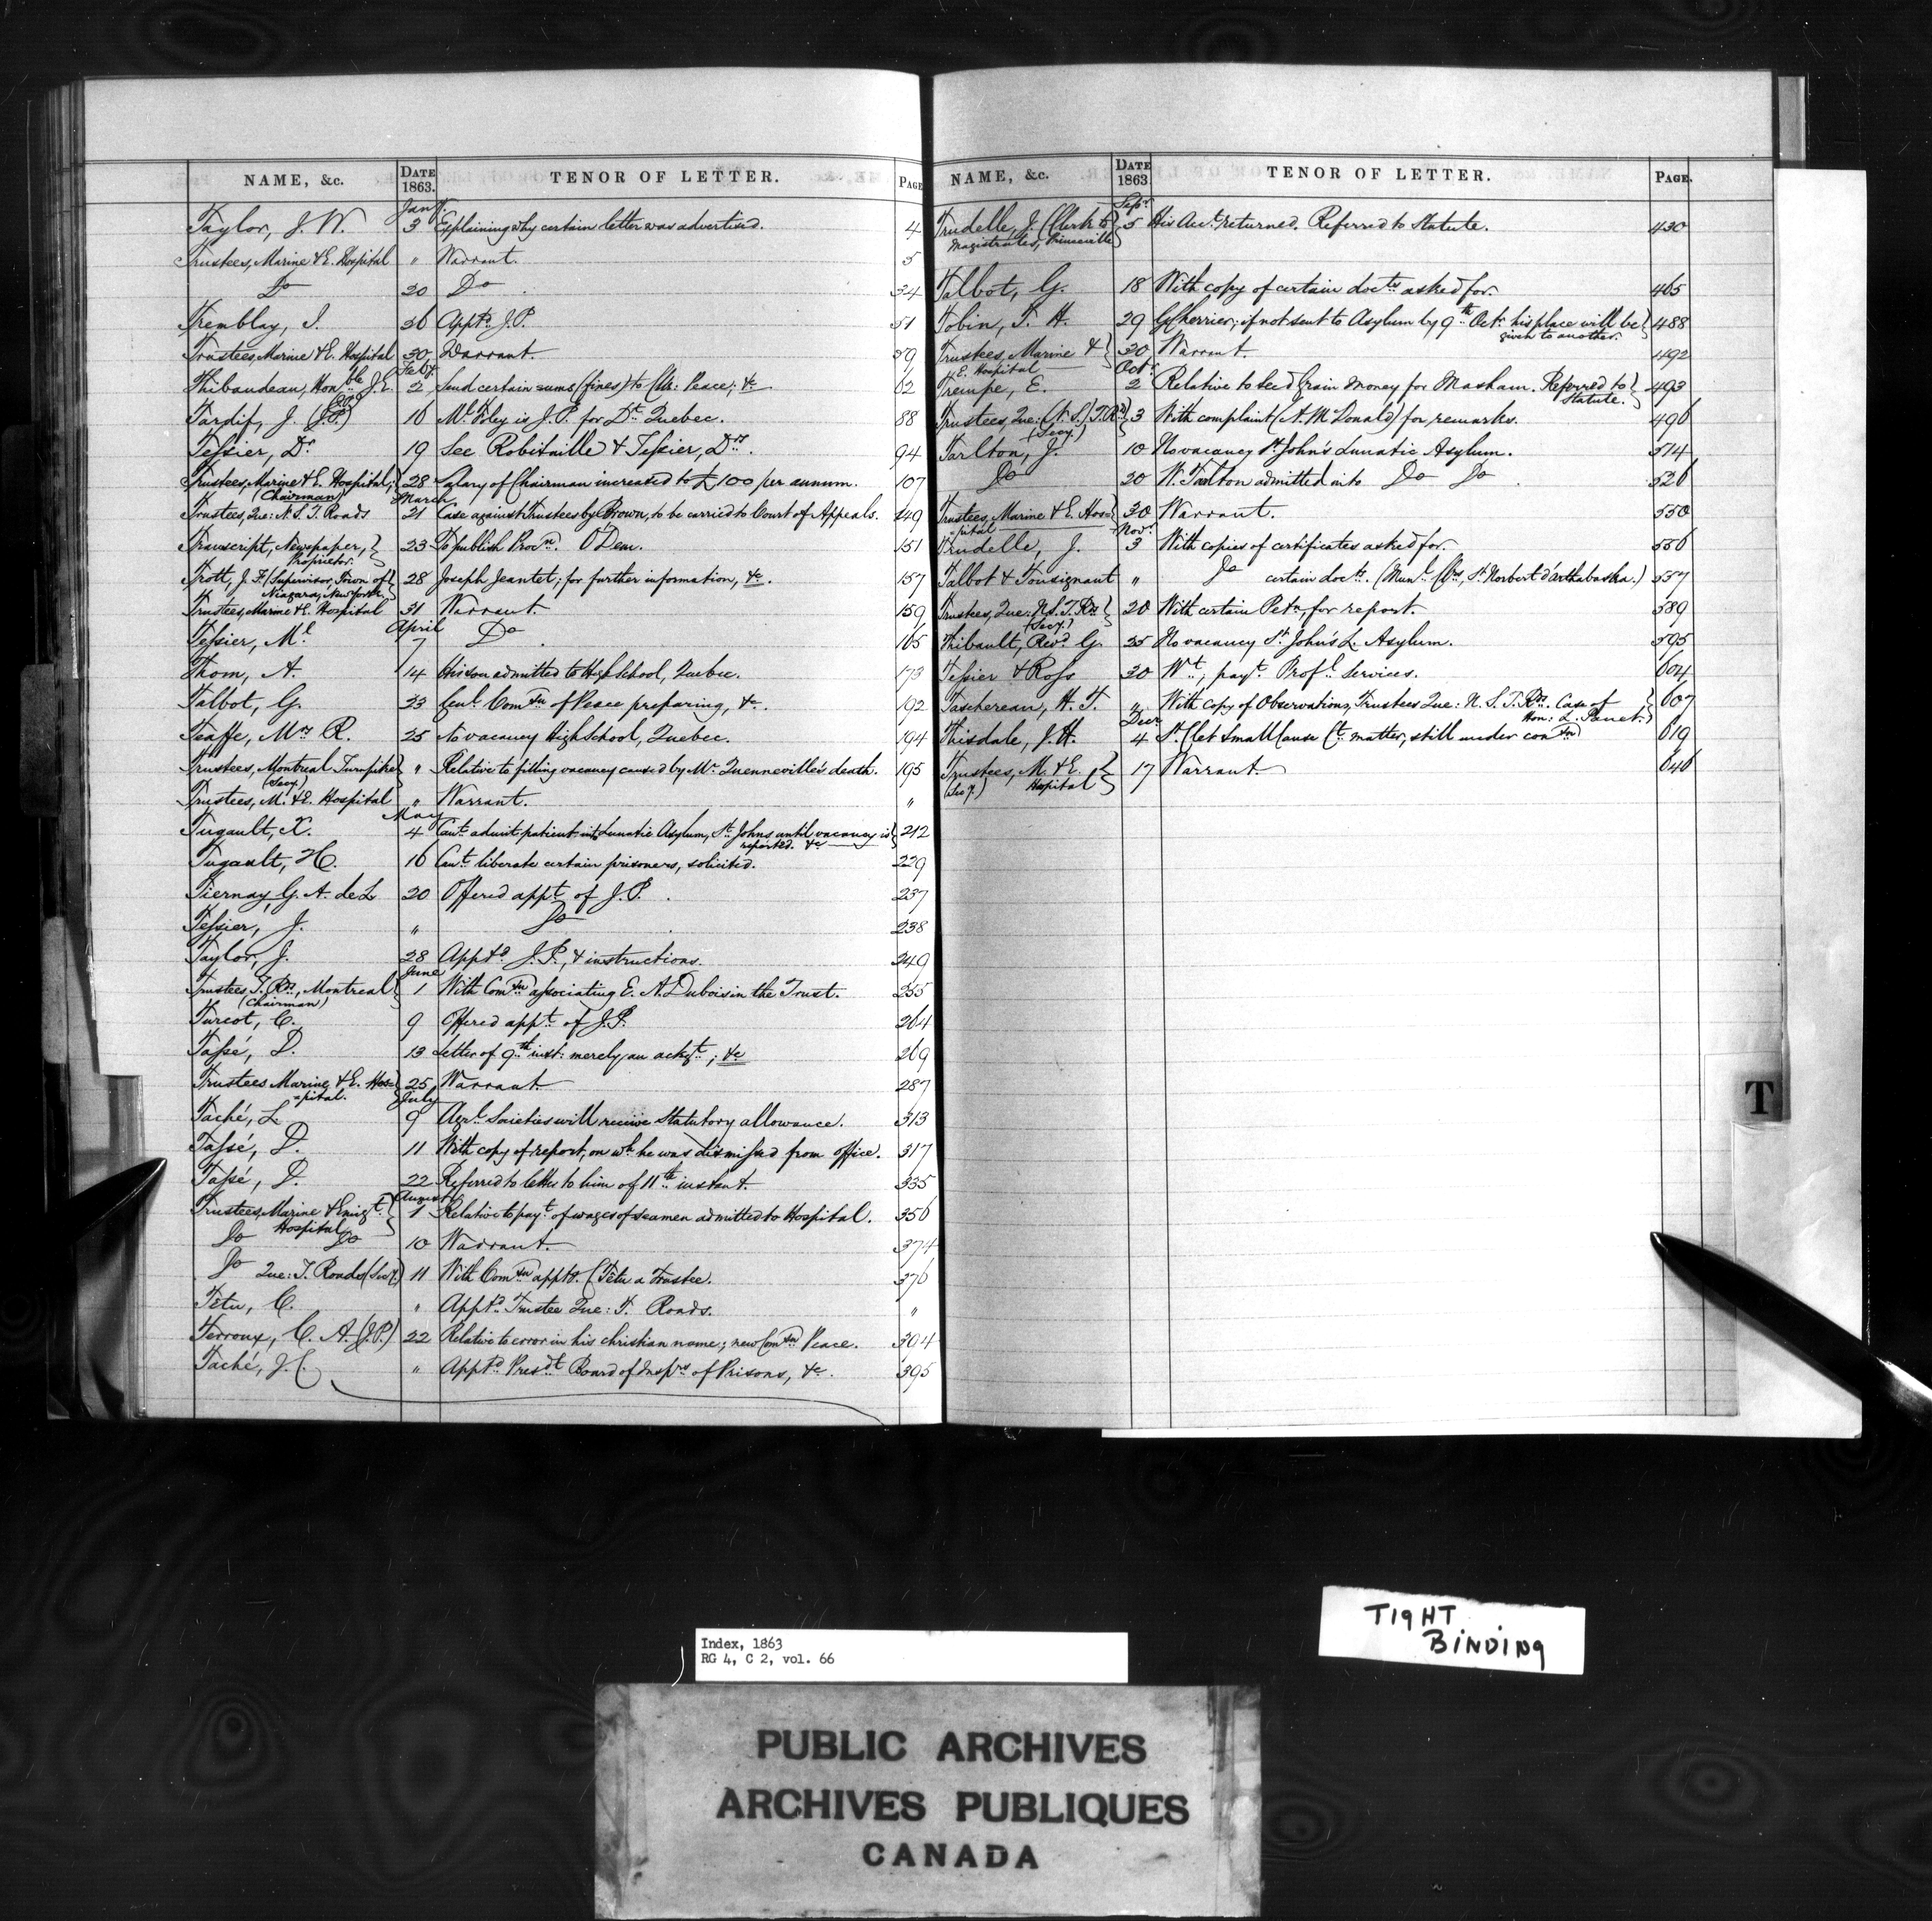 NAME, &c. DATE 1863. TENOR OF LETTER. PAGE
Jany.
Taylor, J. W. 3 Explaining why certain letter was advertised. 4
Trustees, Marine & E. Hospital " Warrant. 5
Do 20 Do. 34
Tremblay, J. 26 Apptd J.P. 51
Trustees, Marine & E. Hospital 30 Warrant. 59
Feby
Thibaudeau, Honble J. E. 2 Send certain sums (fines) to Clk: Peace; &c 62
Tardif, J. (J.P.) 16 Mr Foley is J.P. for Dt Quebec. 88
Tessier, Dr 19 See Robitaille & Tessier, Drs. 94
Trustees, Marine & E. Hospital, (Chairman) 28 Salary of Chairman increased to £100 per annum. 107
March
Trustees, Que: N. S. T. Roads 21 Case against Trustees by Brown, to be carried to Court of Appeals. 149
Transcript, Newspaper, Proprietor. 23 To publish Procn. O'Dem. 151
Trott, J. F. (Supervisor, Town of Niagara, New York) 28 Joseph Jeantet; for further information, &c. 157
Trustees, Marine & E. Hospital 31 Warrant 159
April
Tessier, Mr 7 Do. 165
Thom, A. 14 His son admitted to High School, Quebec. 173
Talbot, G. 23 Genl. Comsn of Peace preparing, &c. 192
Taaffe, Mrs R. 25 No vacancy High School, Quebec. 194
Trustees, Montreal Turnpike (Secy.) " Relative to filling vacancy caused by Mr. Quenneville's death. 195
Trustees, M. & E. Hospital " Warrant. "
May
Tugault, X. 4 Can't admit patient into Lunatic Asylum, St. Johns until vacancy is reported. &c 212
Tugault, H. 16 Can't liberate certain prisoners, solicited. 229
Tiernay, G. A. de L 20 Offered appt of J.P. 237
Tessier, J. " Do 238
Taylor, J. 28 Apptd J.P., & instructions. 249
June
Trustees T. Rds, Montreal (Chairman) 1 With Comsn associating E. A. Dubois in the Trust. 255
Turcot, C. 9 Offered appt of J.P. 264
Tassé, D. 13 Letter of 9th inst: merely an ackgt; &c 269
Trustees Marine & E. Hos=
=pital. 25 Warrant 287
July
Taché, L 9 Agrl Societies will receive Statutory allowance. 313
Tassé, D. 11 With copy of report, on wh he was dismissed from office. 317
Tassé, D. 22 Referred to letter to him of 11th instant. 335
August
Trustees, Marine & Emigt. Hospital 1 Relative to payt of wages of seamen admitted to Hospital. 356
Do Do 10 Warrant. 374
Do Que: T. Roads (Secy.) 11 With Comsn apptg. C Têtu a Trustee. 376
Tetu, C. " Apptd Trustee Que: T. Roads. "
Terroux, C. A. (J.P.) 22 Relative to error in his christian name; new Comsn Peace. 394
Taché, J. C " Apptd Presdt Board of Insprs of Prisons, &c. 395
NAME, &c. DATE 1863 TENOR OF LETTER. PAGE.
Sepr.
Trudelle, J. (Clerk to Magistrates, Princeville) 5 His Acct returned. Referred to Statute. 430
Talbot, G. 18 With copy of certain docts asked for. 465
Tobin, T. H. 29 G Cherrier; if not sent to Asylum by 9th Octr his place will be given to another. 488
Trustees, Marine & E. Hospital 30 Warrant 492
Octr
Trempe, E. 2 Relative to Seed Grain Money for Masham. Referred to Statute. 493
Trustees, Que: (N. S.) T. Rds (Secy.) 3 With complaint (A. McDonald) for remarks. 496
Tarlton, J. 10 No vacancy St John's Lunatic Asylum. 514
Do 20 W. Tarlton admitted into Do Do 526
Trustees, Marine & E. Hos=
=pital 30 Warrant. 550
Novr
Trudelle, J. 3 With copies of certificates asked for. 556
Talbot & Tousignant " Do certain docts. (Munl. Clrs, St Norbert d'Arthabaska.) 557
Trustees, Que: N. S. T. Rds (Secy.) 20 With certain Petn, for report. 589
Thibault, Revd G. 25 No vacancy St. John's L. Asylum. 595
Tessier & Ross 30 Wt, payt. Profl. Services. 604
Taschereau, H. T. " With copy of Observations, Trustees Que: N. S. T. Rds. Case of Hon: L. Panet. 607
Decr
Thisdale, J. H. 4 St Clet Small Cause Ct matter, still under consn 619
Trustees, M. & E. Hospital (Secy.) 17 Warrant 646
T
TIGHT
BINDING
Index, 1863
RG 4, C 2, vol. 66
PUBLIC ARCHIVES
ARCHIVES PUBLIQUES
CANADA